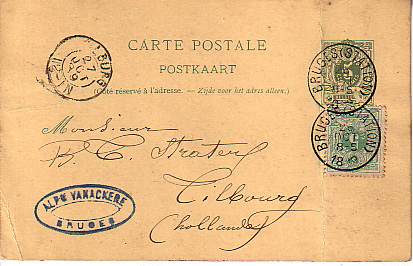 CARTE POSTALE
POSTKAART
(Côté réservé à l'adresse. — Zijde voor het adres alleen.)
BRUGES (STATION)
BRUGES (STATION)
Monsieur
B. C. Strater
Tilbourg
(hollande)
ALPH VANACKERE
BRUGES